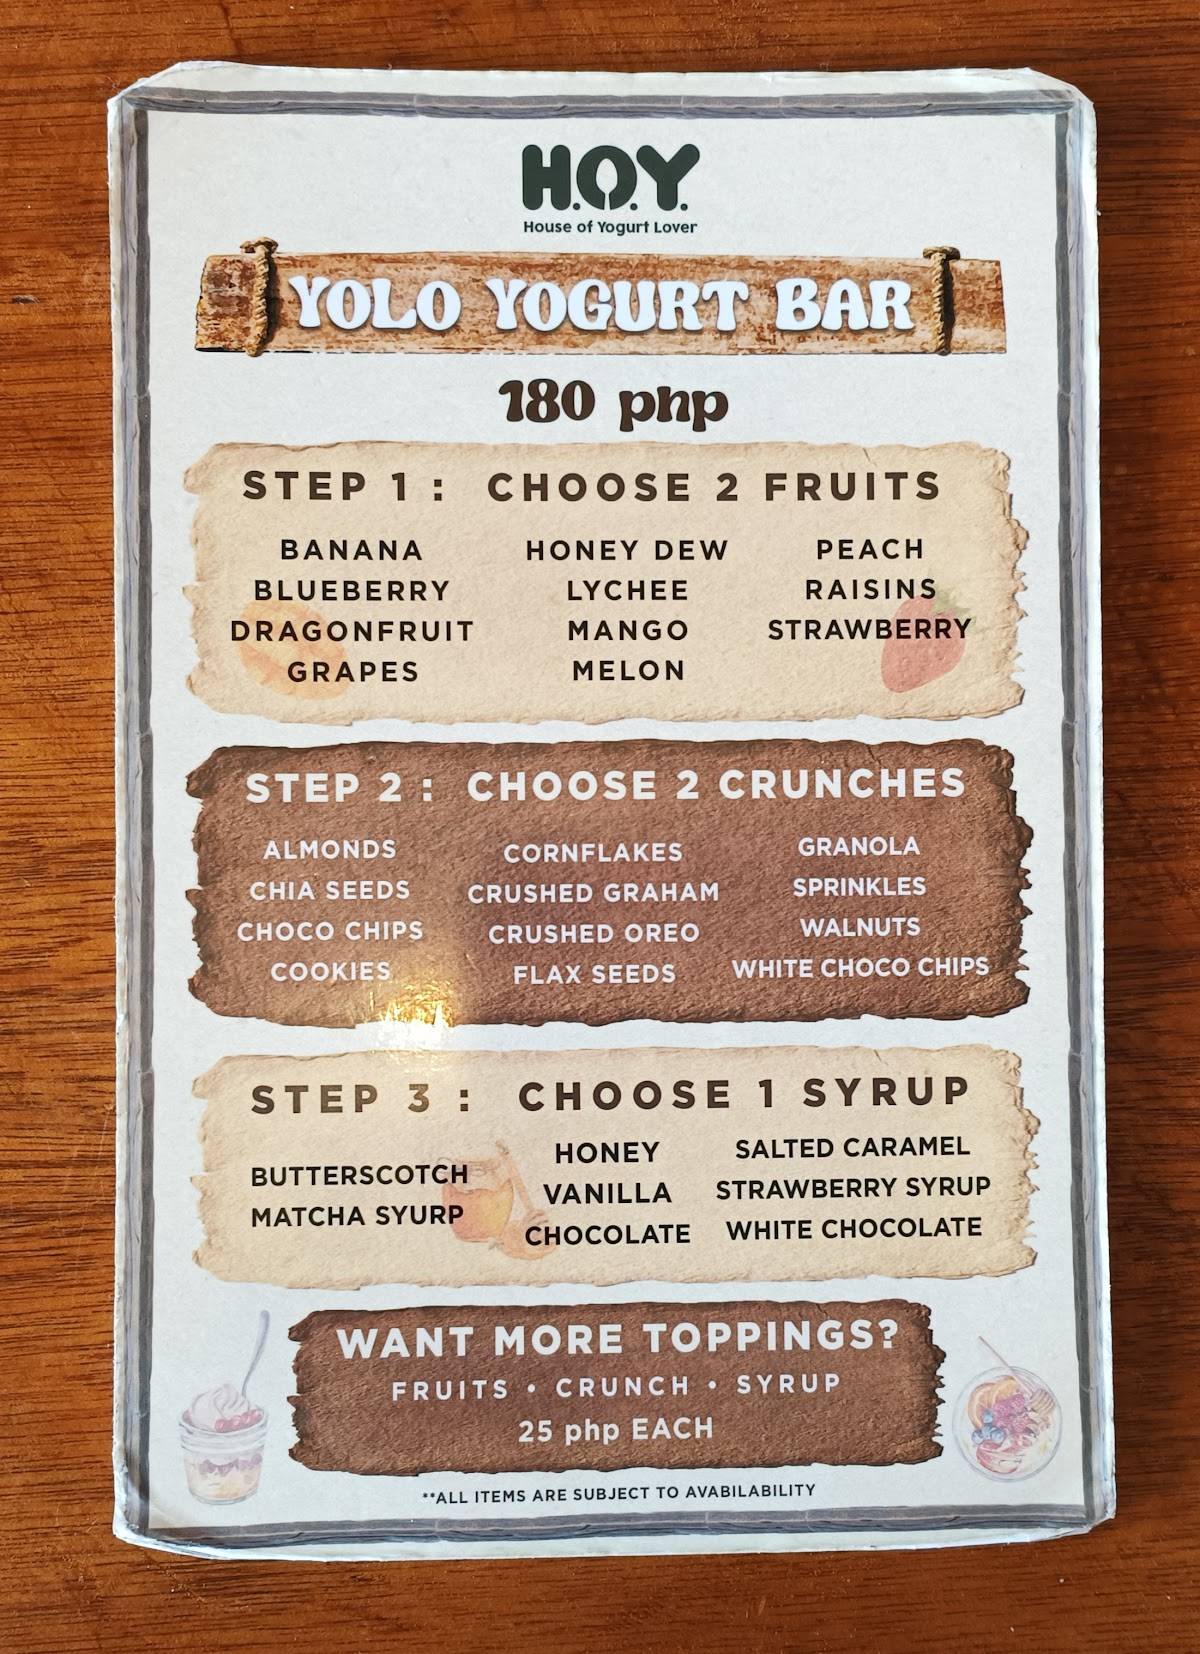 H.O.Y.
House of Yogurt Lover
YOLO YOGURT BAR
180 php
STEP 1 : CHOOSE 2 FRUITS
BANANA
BLUEBERRY
DRAGONFRUIT
GRAPES
HONEY DEW
LYCHEE
MANGO
MELON
PEACH
RAISINS
STRAWBERRY
STEP 2 : CHOOSE 2 CRUNCHES
ALMONDS
CHIA SEEDS
CHOCO CHIPS
COOKIES
CORNFLAKES
CRUSHED GRAHAM
CRUSHED OREO
FLAX SEEDS
GRANOLA
SPRINKLES
WALNUTS
WHITE CHOCO CHIPS
STEP 3 : CHOOSE 1 SYRUP
BUTTERSCOTCH
MATCHA SYURP
HONEY
VANILLA
CHOCOLATE
SALTED CARAMEL
STRAWBERRY SYRUP
WHITE CHOCOLATE
WANT MORE TOPPINGS?
FRUITS • CRUNCH • SYRUP
25 php EACH
**ALL ITEMS ARE SUBJECT TO AVABILABILITY